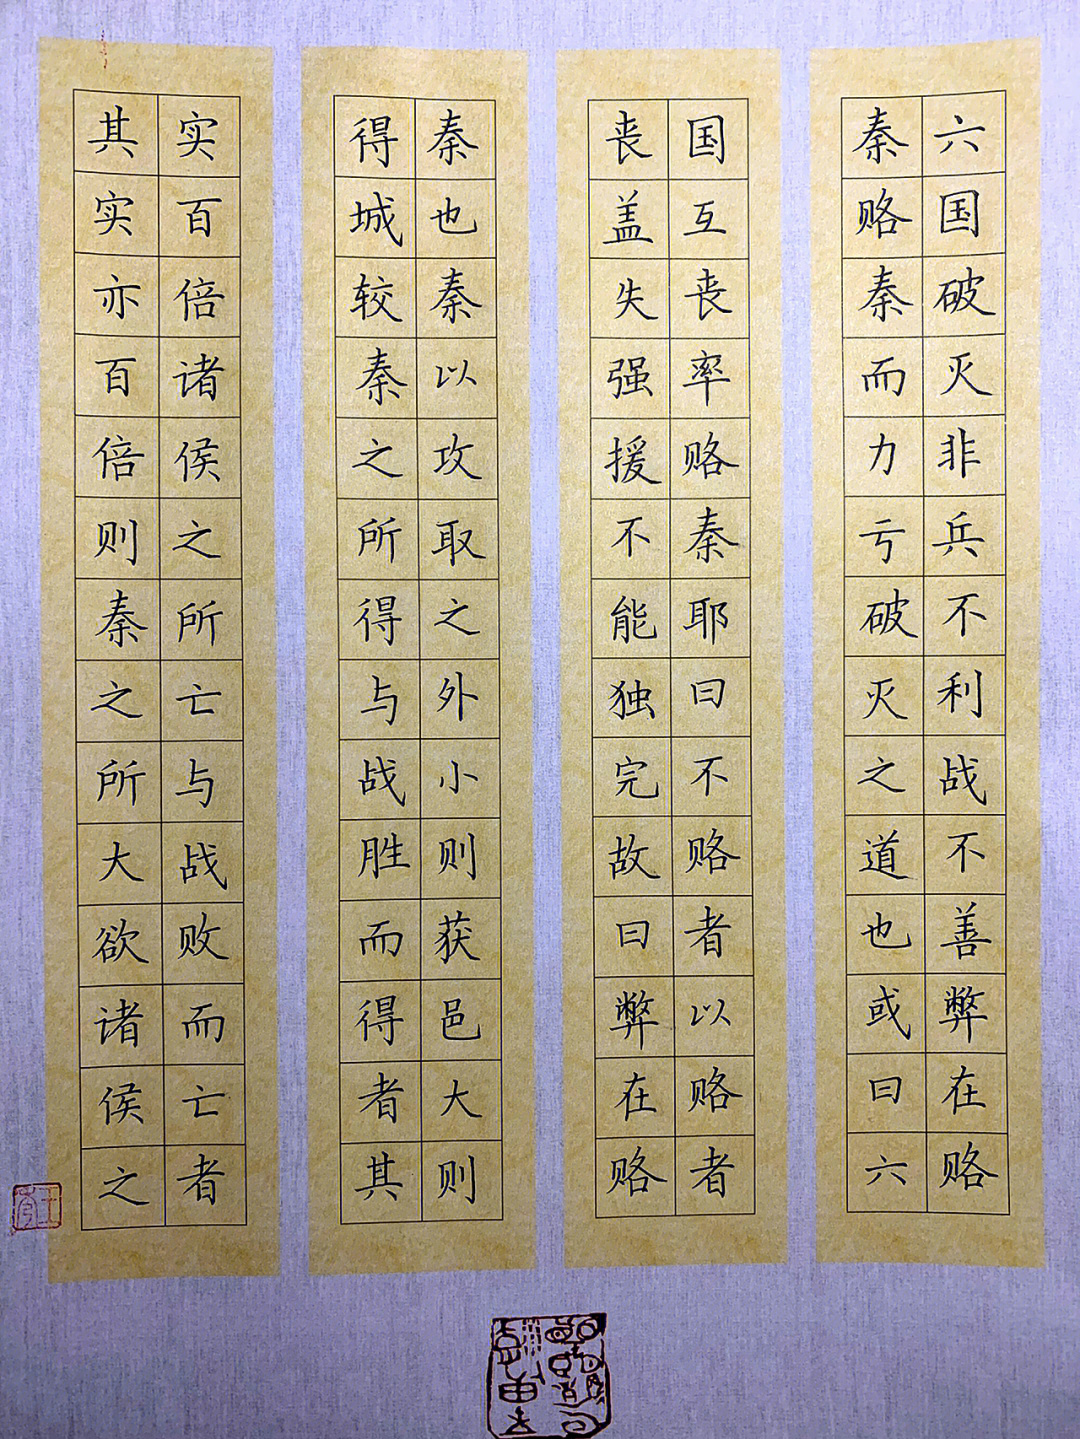 六国破灭非兵不利战不善弊在略
秦略秦而力亏破灭之道也或曰六
国互丧率略秦耶曰不略者以略者
丧盖失强援不能独完故曰弊在略
秦也秦以攻取之外小则获邑大则
得城较秦之所得与战胜而得者其
实百倍诸侯之所亡与战败而亡者
其实亦百倍则秦之所大欲诸侯之